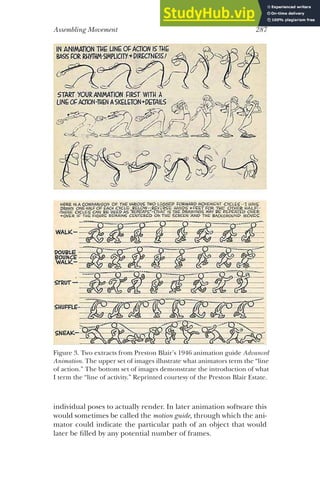 StudyHub.vip
Experienced writers
On-time delivery
24/7 support
Assembling Movement 287
IN ANIMATION THE LINE OF ACTION IS THE
BASIS FOR RHYTHM-SIMPLICITY + DIRECTNESS!
START YOUR ANIMATION FIRST WITH A
LINE OF ACTION-THEN A SKELETON+DETAILS
HERE IS A COMPARISON OF THE VARIOUS TWO LEGGED FORWARD MOVEMENT CYCLES - I HAVE
DRAWN ONE HALF OF EACH CYCLE BELOW - REVERSE HANDS + FEET FOR THE OTHER HALF -
THESE CYCLES CAN BE USED AS "REPEATS" - THAT IS THE DRAWINGS MAY BE REPEATED OVER
+ OVER IF THE FIGURE REMAINS CENTERED ON THE SCREEN AND THE BACKGROUND MOVES
WALK —
DOUBLE
BOUNCE
WALK —
STRUT —
SHUFFLE —
SNEAK —
Figure 3. Two extracts from Preston Blair's 1946 animation guide Advanced
Animation. The upper set of images illustrate what animators term the "line
of action." The bottom set of images demonstrate the introduction of what
I term the "line of activity." Reprinted courtesy of the Preston Blair Estate.
individual poses to actually render. In later animation software this
would sometimes be called the motion guide, through which the ani-
mator could indicate the particular path of an object that would
later be filled by any potential number of frames.